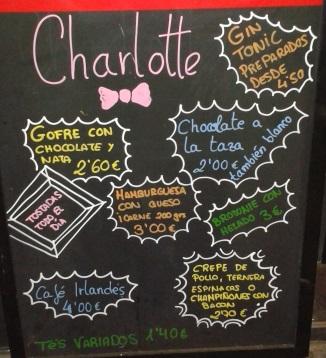 Charlotte
GIN
TONIC
PREPARADOS
DESDE
4'50
GOFRE CON
CHOCOLATE Y
NATA
2'60€
Chocolate a
la taza
2'00€
también blanco
TOSTADAS
TODO EL
DIA
HAMBURGUESA
CON QUESO
1 CARNE 200 grs
3'00€
BROWNIE CON
HELADO 3€
Café Irlandés
4'00€
CREPE DE
POLLO, TERNERA
ESPINACAS O
CHAMPIÑONES CON
BACON
2'90€
TéS VARIADOS 1'40€